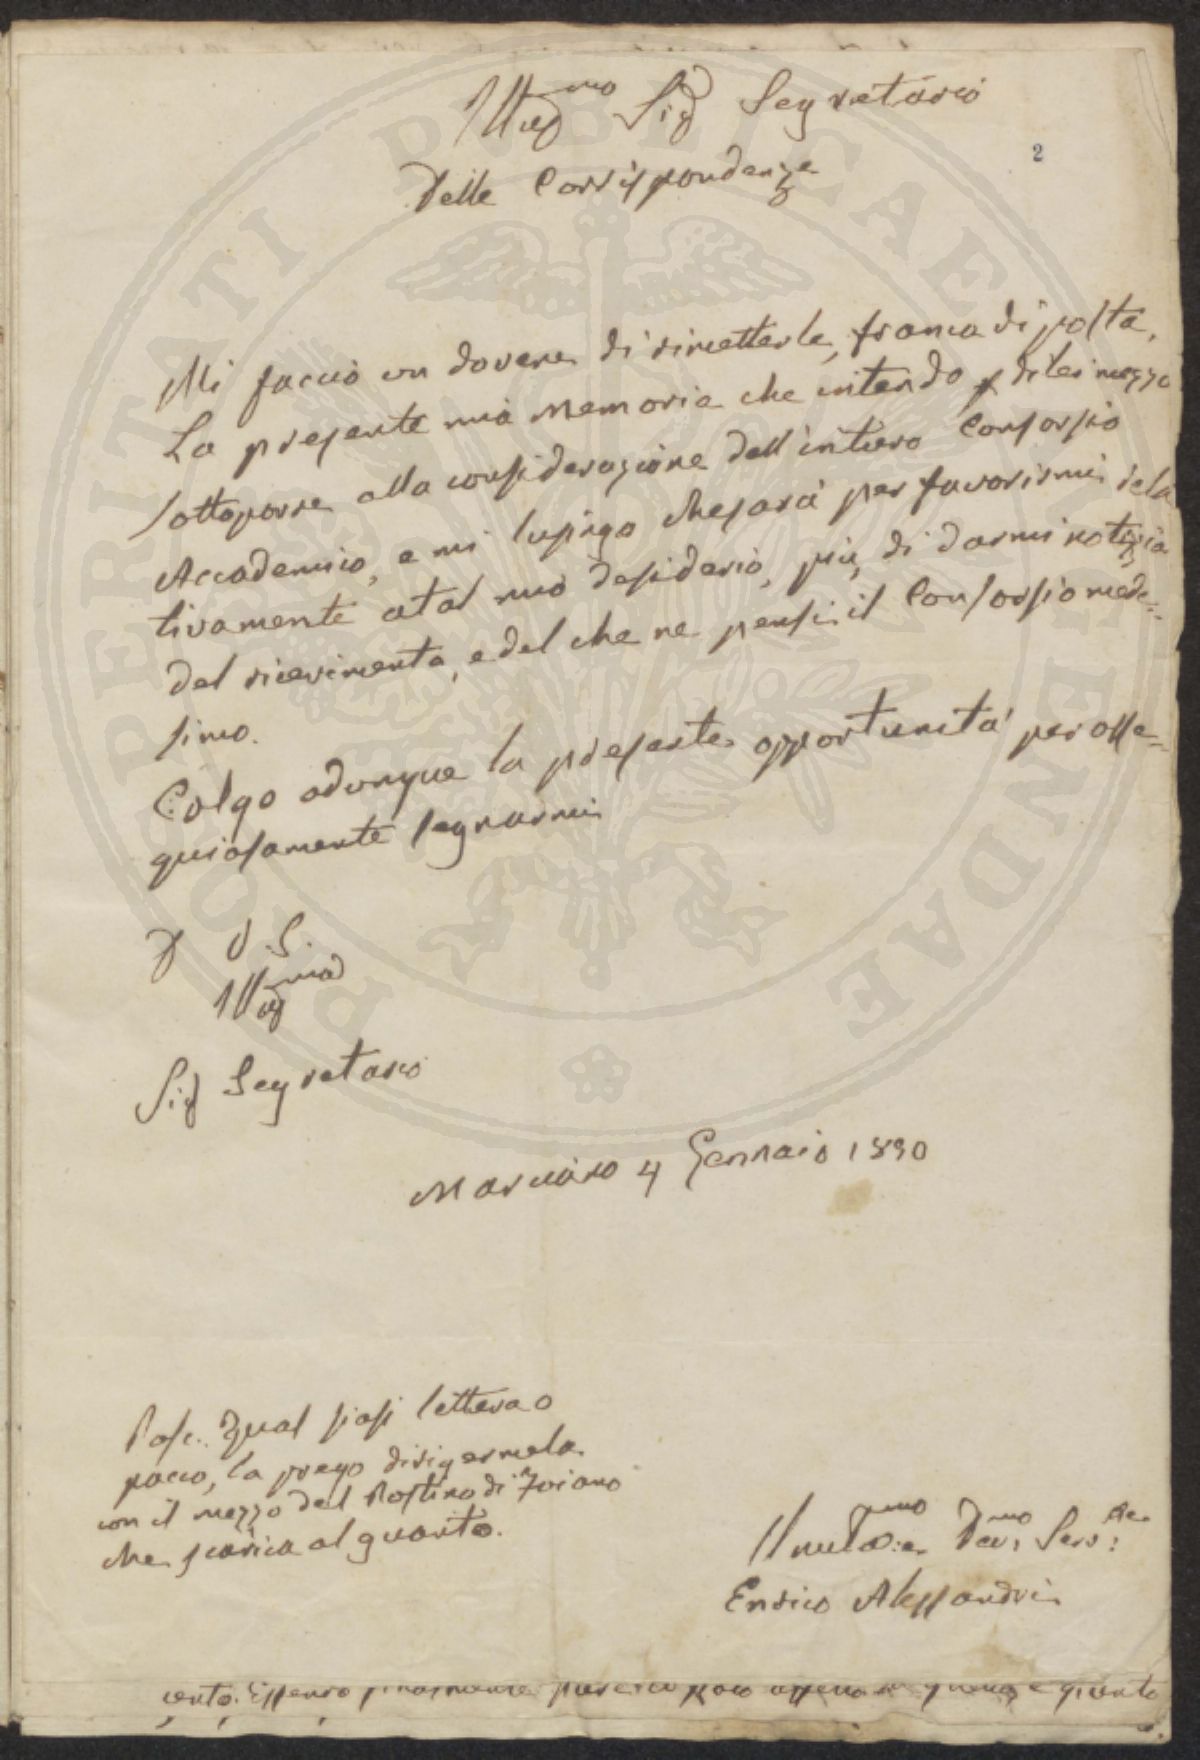 Illus.mo Sig Segretario
2
Delle Corrispondenze
Mi faccio un dovere di rimetterle, franca di posta,
La presente mia Memoria che intendo p di lei mezzo
sottoporre alla considerazione dell'intiero Consorzio
Accademico, e mi lusingo che sarà per favorirmi rela
tivamente a tal mio desiderio, più, di darmi notizia
del ricevimento, e del che ne pensi il Consorzio mede=
simo.
Colgo adunque la presente opportunità per osse=
quiosamente segnarmi
D V. S.
Illus.ma
Sig Segretario
Marciano 4 Gennaio 1830
Posc. Qual siasi lettera o
pacco, la prego dirigermela
con il mezzo del Postino di Foiano
che scarica al quarto.
Umo Devmo Serv:re
Enrico Alessandri
cento. Essendo finalmente e quanto
PROSPERITATI PUBLICAE AUGENDAE